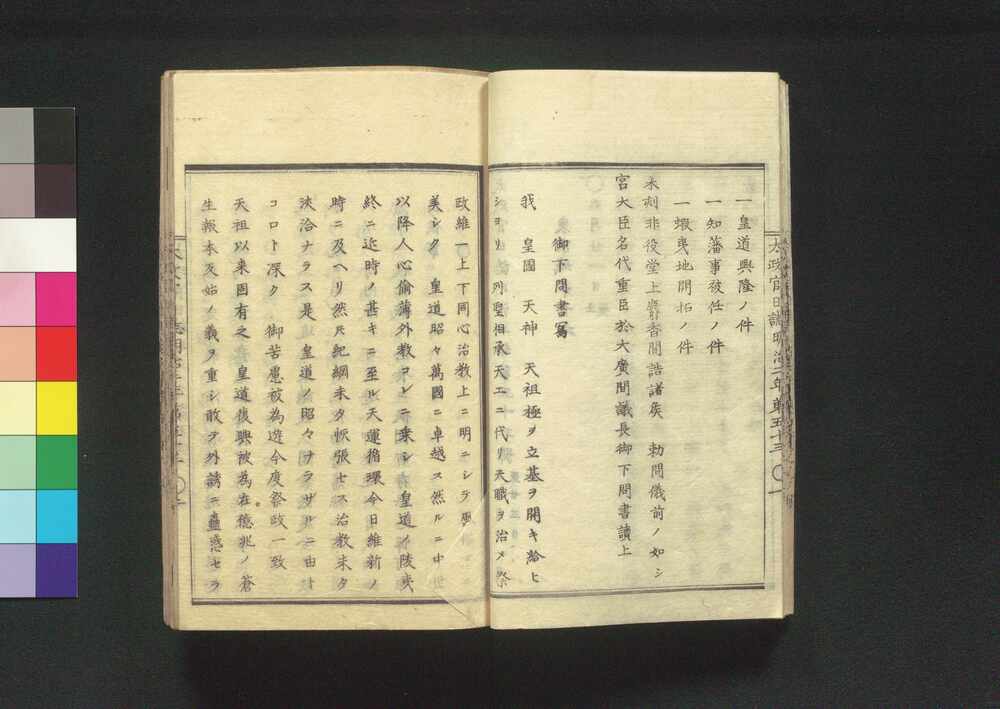 一皇道興隆ノ件
一知藩事被任ノ件
一蝦夷地開拓ノ件
未刻非役堂上麝香間詰諸矦　勅問儀前ノ如シ
宮大臣名代重臣於大廣間議長御下問書讀上
御下問書寫
我　皇國　天神　天祖極ヲ立基ヲ開キ給ヒ
シヨリ　列聖相承天工ニ代リ天職ヲ治メ祭
政維一上下同心治教上ニ明ニシテ風
美シク　皇道昭々萬國ニ卓越ス然ルニ中世
以降人心偷薄外教コレニ乗シ　皇道ノ陵夷
終ニ近時ノ甚キニ至ル天運循環今日維新ノ
時ニ及ヘリ然𪜈紀綱未タ恢張セス治教未タ
浹洽ナラス是　皇道ノ昭々ナラサルニ由ル
コロト深ク　御苦慮被為遊今度祭政一致
天祖以来固有之　皇道復興被為在億兆ノ蒼
生報本反始ノ義ヲ重シ敢テ外誘ニ蠱惑セラ
太政官日誌明治二年第五十三　〇一